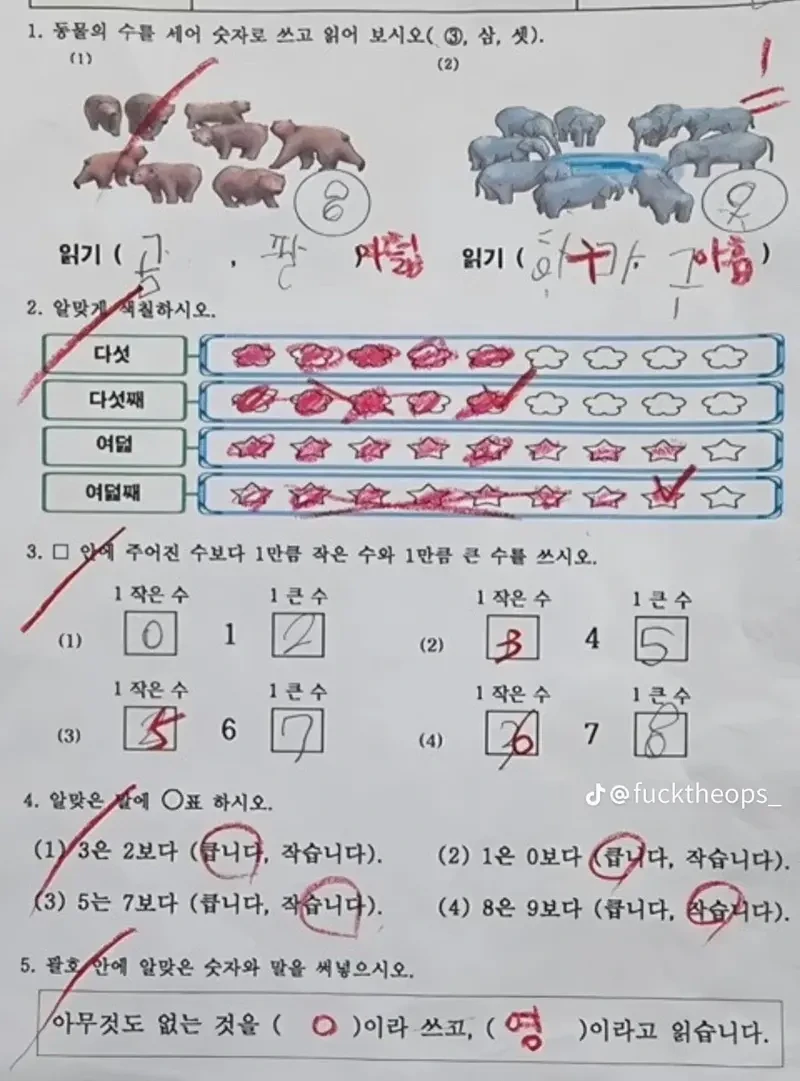 1. 동물의 수를 세어 숫자로 쓰고 읽어 보시오( ③, 삼, 셋).
(1) (2)
8 9
읽기 ( 곰 , 팔 여덟 읽기 ( 구 아홉 )
2. 알맞게 색칠하시오.
다섯
다섯째
여덟
여덟째
3. □ 안에 주어진 수보다 1만큼 작은 수와 1만큼 큰 수를 쓰시오.
1 작은 수 1 큰 수 1 작은 수 1 큰 수
(1) 0 1 2 (2) 3 4 5
1 작은 수 1 큰 수 1 작은 수 1 큰 수
(3) 5 6 7 (4) 6 7 8
@fucktheops_
4. 알맞은 말에 ○표 하시오.
(1) 3은 2보다 (큽니다, 작습니다). (2) 1은 0보다 (큽니다, 작습니다).
(3) 5는 7보다 (큽니다, 작습니다). (4) 8은 9보다 (큽니다, 작습니다).
5. 괄호 안에 알맞은 숫자와 말을 써넣으시오.
아무것도 없는 것을 ( 0 )이라 쓰고, ( 영 )이라고 읽습니다.